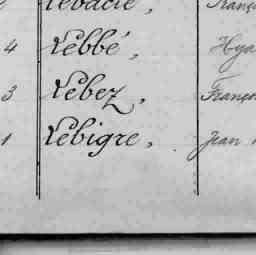 Lebacle, Franço
4 Lebbé, Hya
3 Lebez, Franço
1 Lebigre, Jean